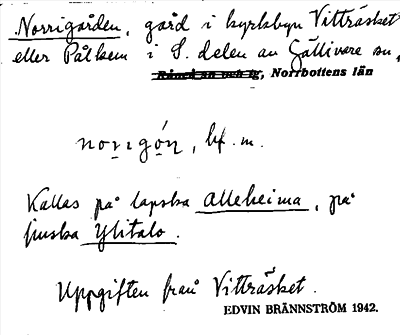 Norrigården, gård i kyrkbyn Vitträsket
eller Pålkem i S. delen av Gällivare sn,
Råneå sn och tg, Norrbottens län
norigón, bf. m.
Kallas på lapska Alleheima, på
finska Ylitalo.
Uppgiften från Vitträsket.
EDVIN BRÄNNSTRÖM 1942.